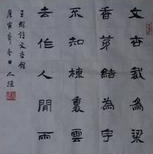 文杏裁為梁
香茅結為宇
不知棟裏雲
去作人間雨
王維詩文杏館
庚寅